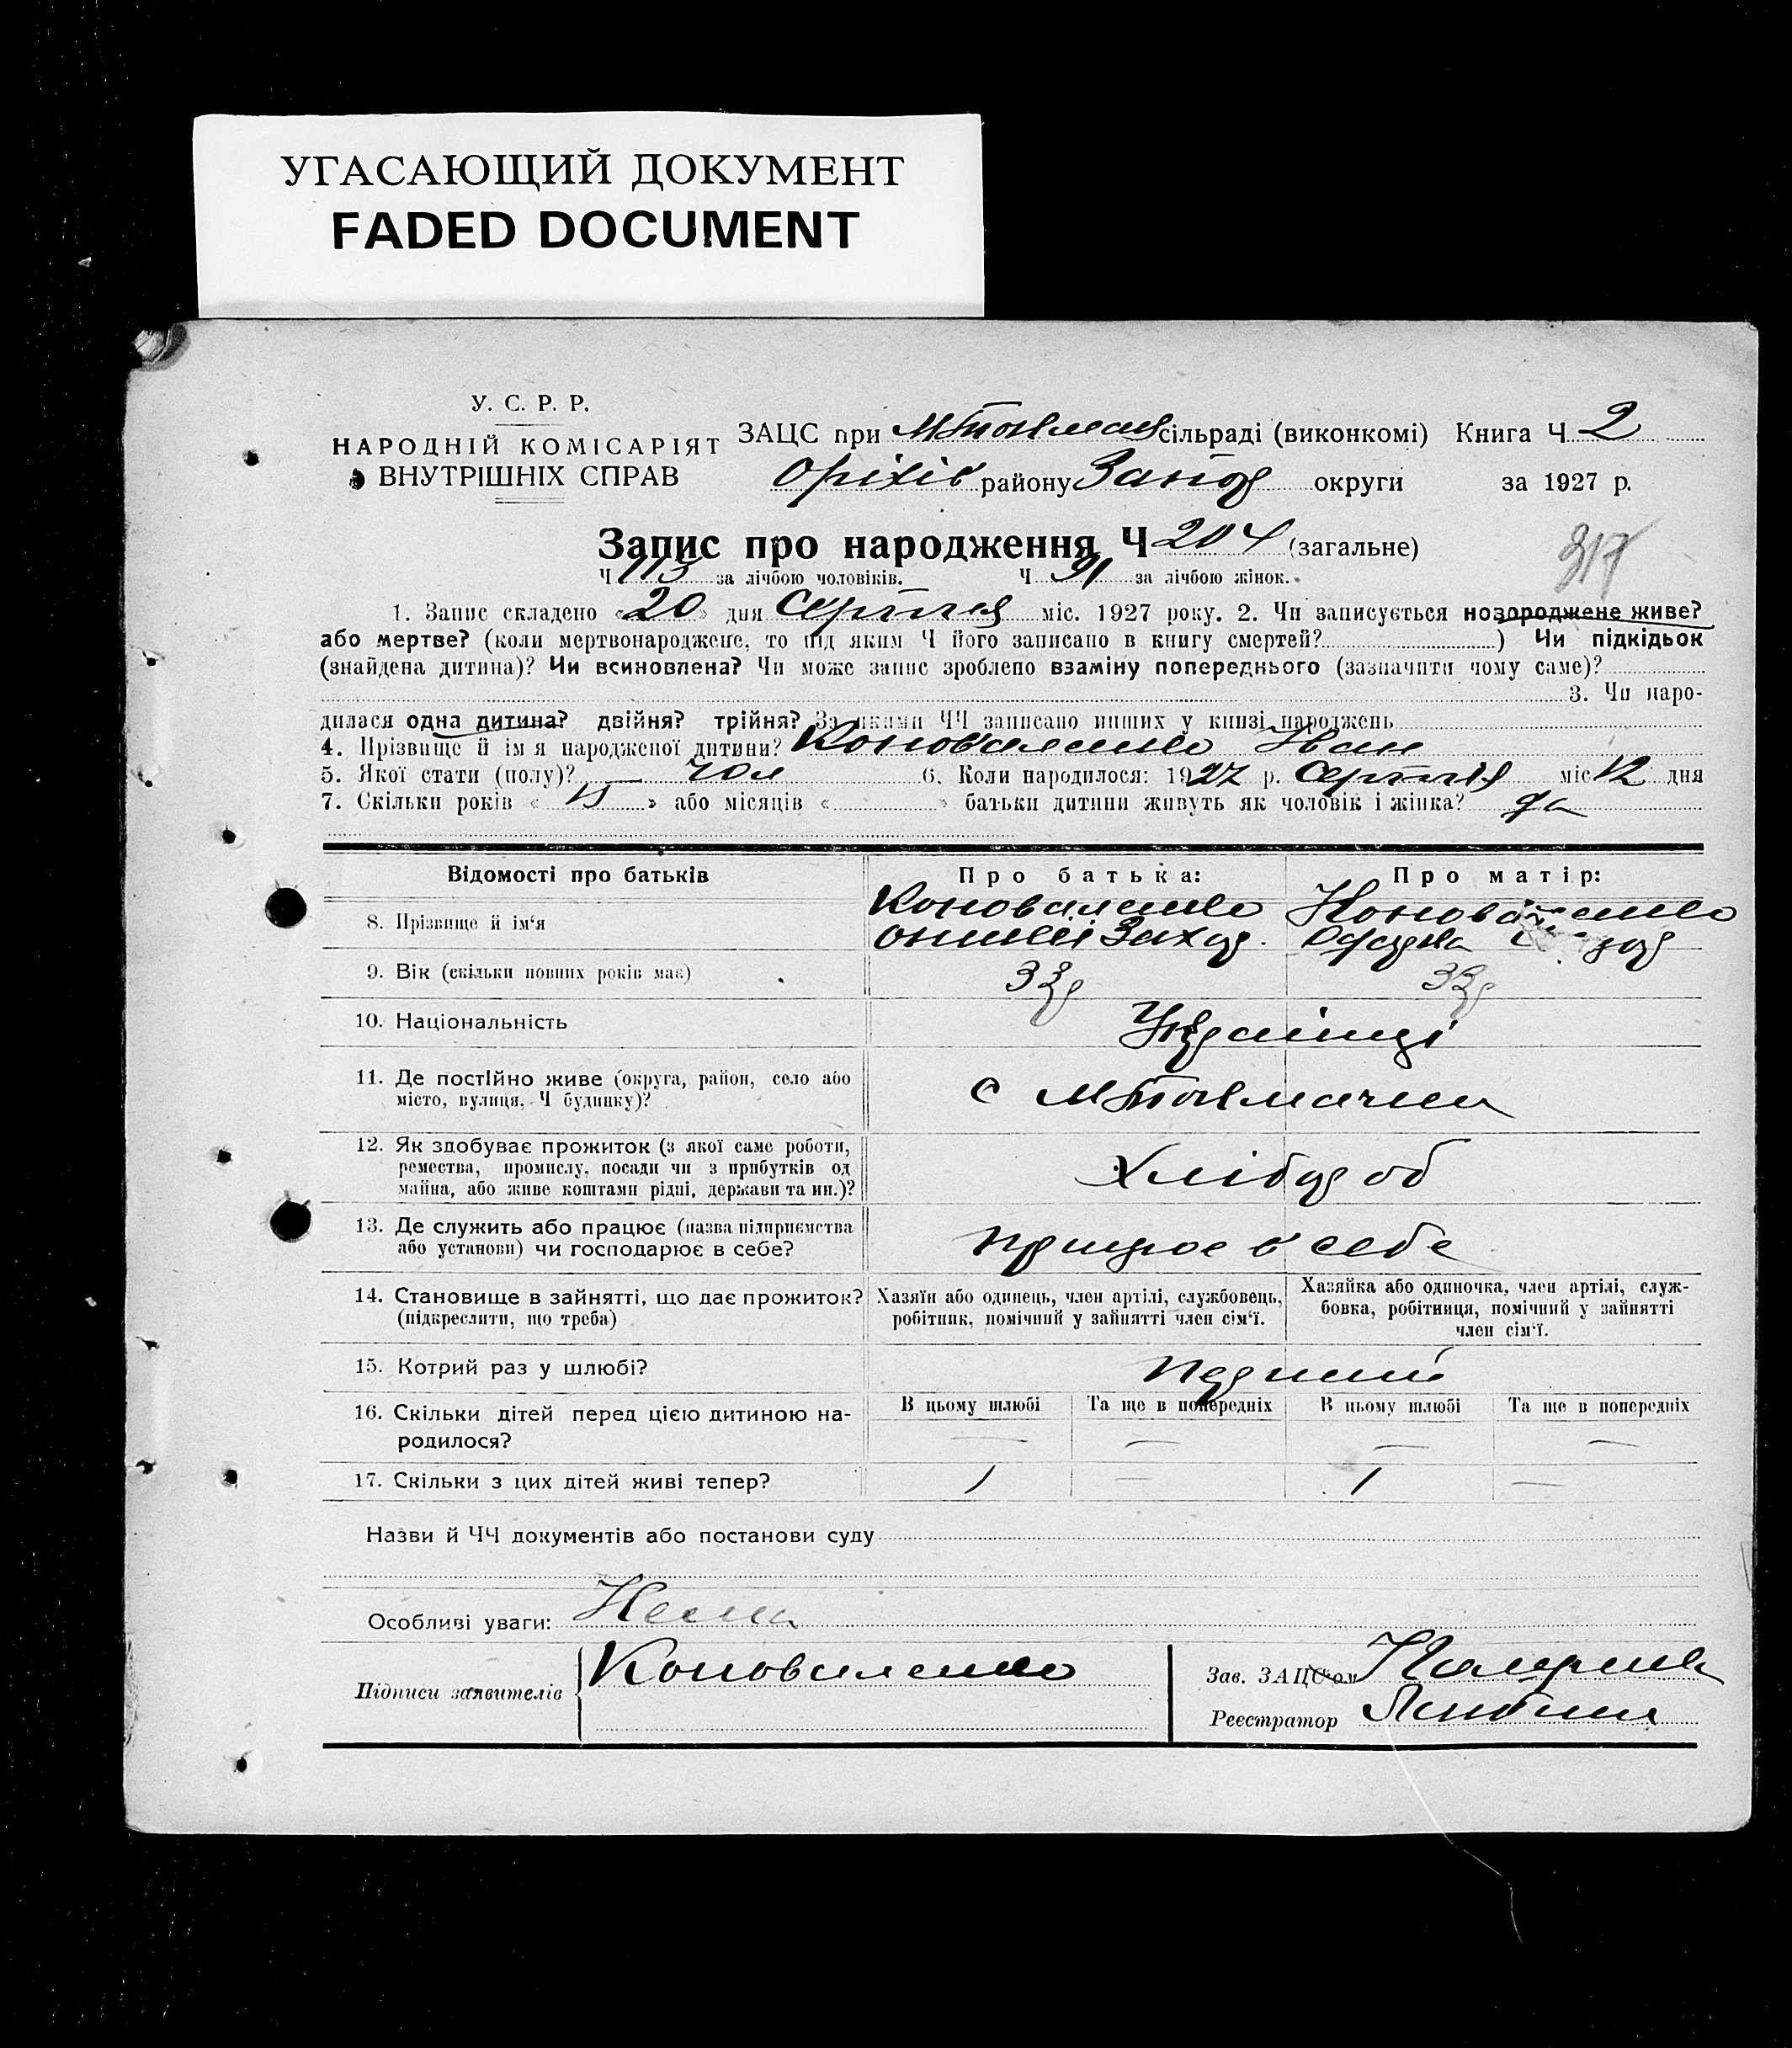 УГАСАЮЩИЙ ДОКУМЕНТ
FADED DOCUMENT
У. С. Р. Р.
НАРОДНІЙ КОМІСАРІЯТ
ВНУТРІШНІХ СПРАВ
ЗАЦС при сільраді (виконкомі) Книга Ч 2
Оріхів району Запор округи за 1927 р.
Запис про народження Ч 204 (загальне)
317
Ч 113 за лічбою чоловіків. Ч 91 за лічбою жінок.
1. Запис складено «20» дня Серпня міс. 1927 року. 2. Чи записується новороджене живе?
або мертве? (коли мертвонароджене, то під яким Ч його записано в книгу смертей? ) Чи підкідьок
(знайдена дитина)? Чи всиновлена? Чи може запис зроблено взаміну попереднього (зазначити чому саме)?
3. Чи наро-
дилася одна дитина? двійня? трійня? За якими ЧЧ записано инших у книзі народжень
4. Прізвище й ім'я народженої дитини? Коноваленко Іван
5. Якої стати (полу)? — Чол 6. Коли народилося: 1927 р. Серпня міс 12 дня
7. Скільки років « » або місяців « » батьки дитини живуть як чоловік і жінка? да
Відомості про батьків Про батька: Про матір:
8. Прізвище й ім'я Коноваленко Коноваленко
9. Вік (скільки повних років має)
10. Національність Українці
11. Де постійно живе (округа, район, село або
місто, вулиця, Ч будинку)? с М Токмачки
12. Як здобуває прожиток (з якої саме роботи,
ремества, промислу, посади чи з прибутків од
майна, або живе коштами рідні, держави та ин.)? Хлібороб
13. Де служить або працює (назва підприємства
або установи) чи господарює в себе? працює в себе
14. Становище в зайнятті, що дає прожиток?
(підкреслити, що треба)
Хазяїн або одинець, член артілі, службовець,
робітник, помічний у зайнятті член сім'ї.
Хазяйка або одиночка, член артілі, служ-
бовка, робітниця, помічний у зайнятті
член сім'ї.
15. Котрий раз у шлюбі? Первий
16. Скільки дітей перед цією дитиною на-
родилося?
В цьому шлюбі Та ще в попередніх В цьому шлюбі Та ще в попередніх
— — — —
17. Скільки з цих дітей живі тепер? 1 — 1 —
Назви й ЧЧ документів або постанови суду
Особливі уваги: Нема
Підписи заявителів Коноваленко
Зав. ЗАЦС'ом
Реєстратор